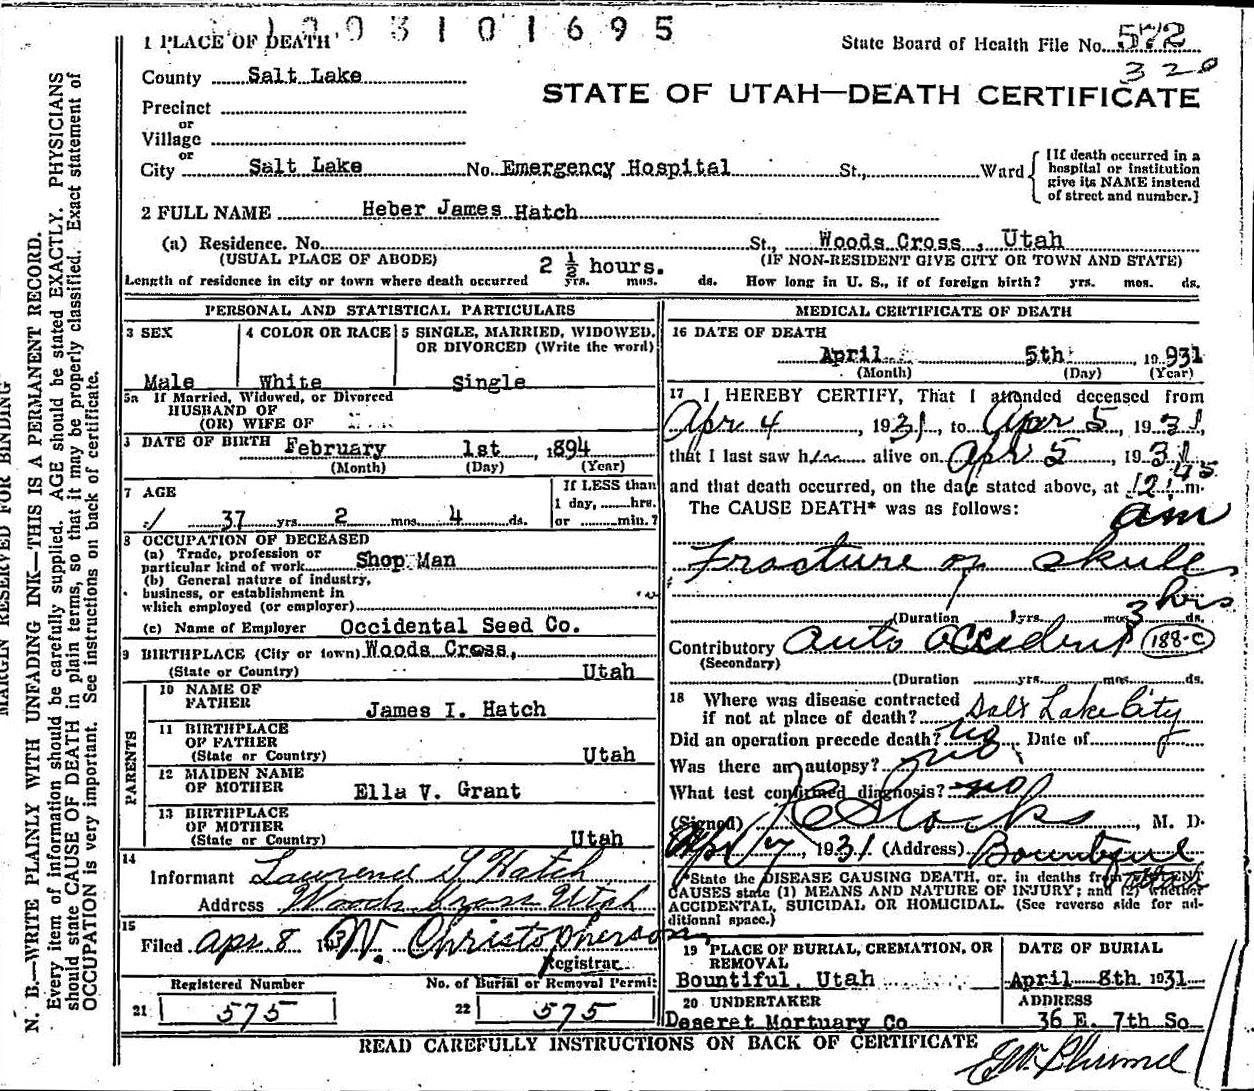 1003101695
1 PLACE OF DEATH
State Board of Health File No. 572
320
County Salt Lake
STATE OF UTAH—DEATH CERTIFICATE
Precinct
or
Village
or
City Salt Lake No. Emergency Hospital St., Ward
[If death occurred in a
hospital or institution
give its NAME instead
of street and number.]
2 FULL NAME Heber James Hatch
(a) Residence. No. St., Woods Cross, Utah
(USUAL PLACE OF ABODE) (IF NON-RESIDENT GIVE CITY OR TOWN AND STATE)
2 ½ hours.
Length of residence in city or town where death occurred yrs. mos. ds. How long in U. S., if of foreign birth? yrs. mos. ds.
PERSONAL AND STATISTICAL PARTICULARS
3 SEX
Male
4 COLOR OR RACE
White
5 SINGLE, MARRIED, WIDOWED,
OR DIVORCED (Write the word)
Single
5a If Married, Widowed, or Divorced
HUSBAND OF
(OR) WIFE OF
DATE OF BIRTH February 1st, 1894
(Month) (Day) (Year)
7 AGE
37 yrs. 2 mos. 4 ds.
If LESS than
1 day, hrs.
or min.?
8 OCCUPATION OF DECEASED
(a) Trade, profession or
particular kind of work Shop Man
(b) General nature of industry,
business, or establishment in
which employed (or employer)
(c) Name of Employer Occidental Seed Co.
9 BIRTHPLACE (City or town) Woods Cross,
(State or Country) Utah
PARENTS
10 NAME OF
FATHER James I. Hatch
11 BIRTHPLACE
OF FATHER
(State or Country) Utah
12 MAIDEN NAME
OF MOTHER Ella V. Grant
13 BIRTHPLACE
OF MOTHER
(State or Country) Utah
14
Informant Lawrence G Hatch
Address Woods Cross Utah
15
Filed Apr 8 193 W. Christopherson
Registrar
Registered Number
21 575
No. of Burial or Removal Permit
22 575
MEDICAL CERTIFICATE OF DEATH
16 DATE OF DEATH
April 5th 1931
(Month) (Day) (Year)
17 I HEREBY CERTIFY, That I attended deceased from
Apr 4, 1931, to Apr 5, 1931,
that I last saw him alive on Apr 5, 1931
and that death occurred, on the date stated above, at 12:45 m.
The CAUSE DEATH* was as follows: am
Fracture of skull
3 hrs
(Duration yrs. mos. ds.
Contributory auto accident 188-c
(Secondary)
(Duration yrs. mos. ds.
18 Where was disease contracted
if not at place of death? Salt Lake City
Did an operation precede death? no Date of
Was there an autopsy? no
What test confirmed diagnosis? no
(Signed) Stocks, M. D.
Apr 7, 1931 (Address) Bountiful
*State the DISEASE CAUSING DEATH, or, in deaths from VIOLENT
CAUSES state (1) MEANS AND NATURE OF INJURY; and (2) whether
ACCIDENTAL, SUICIDAL OR HOMICIDAL. (See reverse side for ad-
ditional space.)
19 PLACE OF BURIAL, CREMATION, OR
REMOVAL
Bountiful, Utah
DATE OF BURIAL
April 8th. 1931
20 UNDERTAKER
Deseret Mortuary Co
ADDRESS
36 E. 7th So
READ CAREFULLY INSTRUCTIONS ON BACK OF CERTIFICATE
MARGIN RESERVED FOR BINDING
N. B.—WRITE PLAINLY WITH UNFADING INK—THIS IS A PERMANENT RECORD.
Every item of information should be carefully supplied. AGE should be stated EXACTLY. PHYSICIANS
should state CAUSE OF DEATH in plain terms, so that it may be properly classified. Exact statement of
OCCUPATION is very important. See instructions on back of certificate.